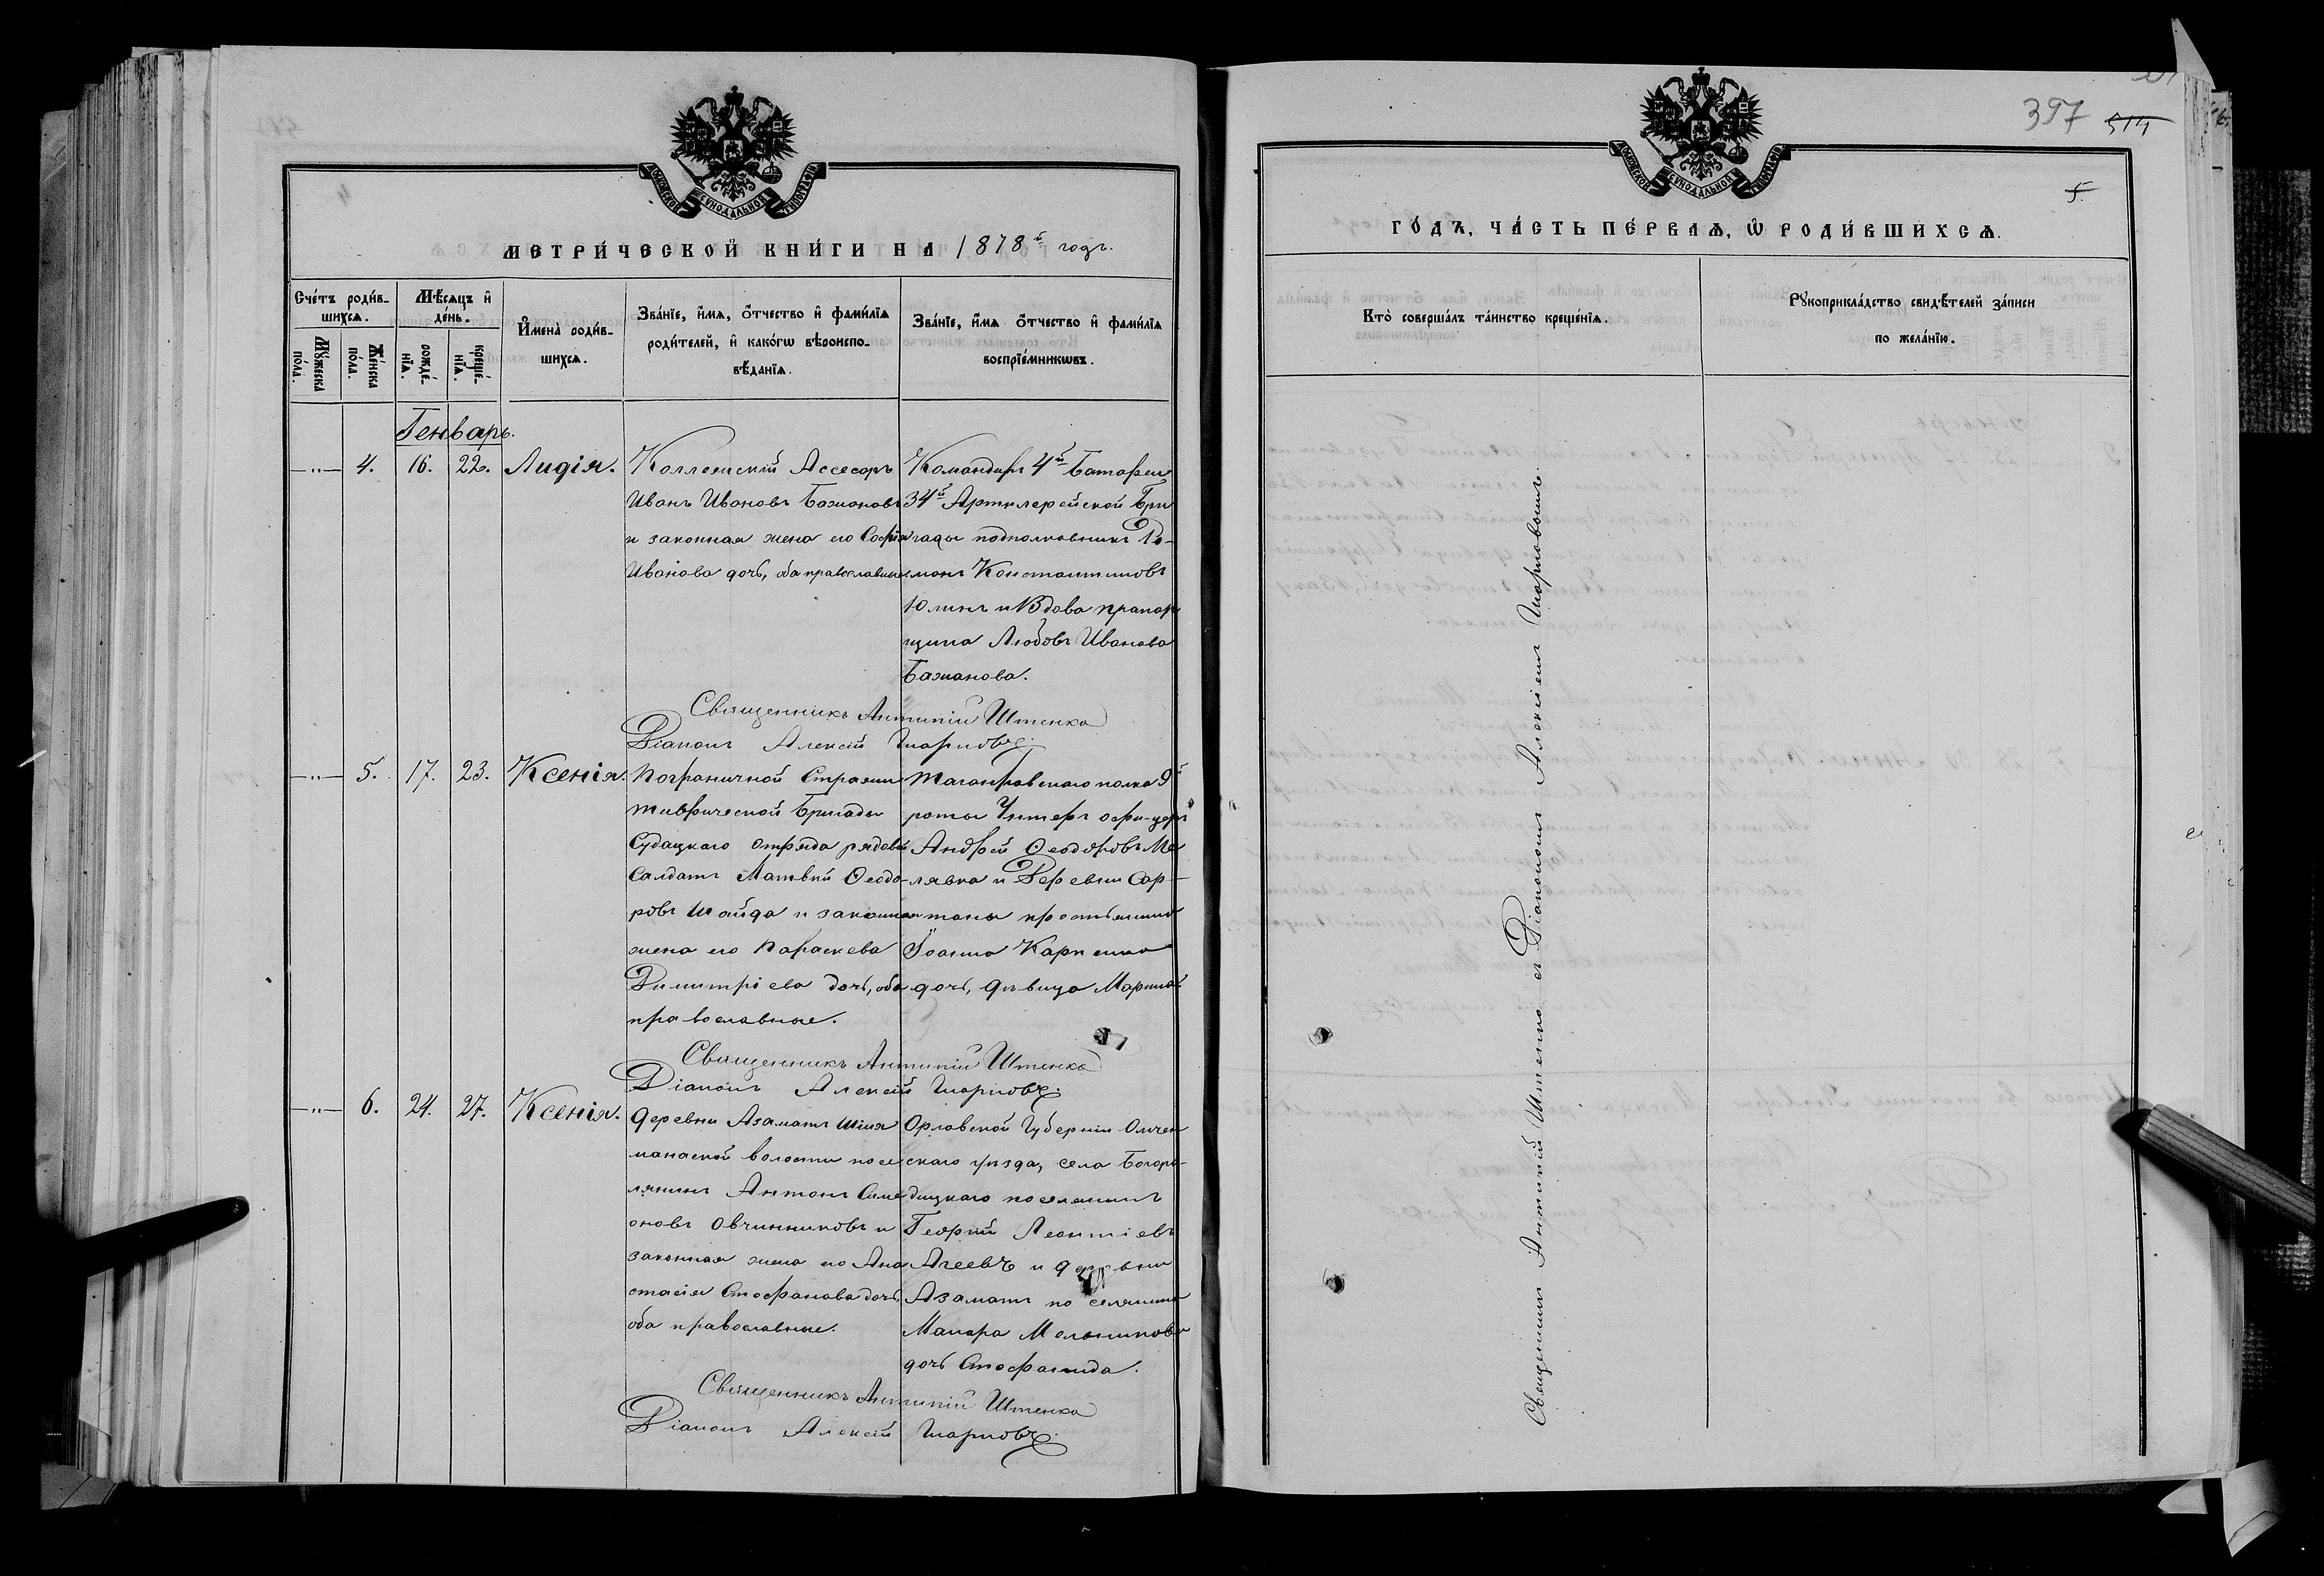 МОСКОВСКОЙ СУНОДАЛЬНОЙ ТИПОГРАФІИ
МЕТРИ́ЧЕСКОЙ КНИ́ГИ НА 1878й годъ.
Сче́тъ роди́вшихся.
Мѣ́сяцъ и де́нь.
Имена̀ роди́вшихся.
Зва́нїе, и́мя, о́тчество и фами́лїя родителей, и како́гѡ вѣроисповѣ́данїя.
Зва́нїе, и́мя о́тчество и фами́лїя воспрїе́мникѡвъ.
Мꙋ́жеска по́ла.
Же́нска по́ла.
рожде́нїя.
креще́нїя.
Генварь.
—"— 4. 16. 22. Лидія.
Коллежскій Ассесоръ
Иванъ Ивановъ Бажановъ
и законная жена его Софія
Иванова дочь, оба православные
Командиръ 4й Батареи
34й Артилерейской Бри
гады подполковникъ Ро-
манъ Константиновъ
Юлинъ и Вдова прапор
щица Любовь Иванова
Бажанова.
Священникъ Антипій Штенко
Діаконъ Алексій
—"— 5. 17. 23. Ксенія.
Пограничной Стражи
Таврической Бригады
Судацкаго отряда рядовой
Салдатъ Матвей Ѳеодо-
ровъ Шайда и законная
жена его Параскева
Димитріева дочь, оба
православные.
Таганровскаго полка 9й
роты Унтеръ офи-церъ
Андрей Ѳеодоровъ Ма
лявка и Деревни Сар-
таны
Іоанна Карпенка
дочь, дѣвица Марина
Священникъ Антипій Штенко
Діаконъ Алексій
—"— 6. 24. 27. Ксенія.
Деревни Азаматъ Шиха
манской волости посе
лянинъ Антонъ Симе
оновъ Овчинниковъ и
законная жена его Ана
стасія Стефанова дочь,
оба православные.
Орловской Губерніи
скаго уѣзда, села Богоро-
дицкаго поселянинъ
Георгій Леонтіевъ
Агеевъ и деревни
Азаматъ поселянина
Макара Мельникова
дочь Стефанида.
Священникъ Антипій Штенко
Діаконъ Алексій
397 514
5.
МОСКОВСКОЙ СУНОДАЛЬНОЙ ТИПОГРАФІИ
ГО́ДЪ, ЧА́СТЬ ПЕ́РВАЯ, Ѡ РОДИ́ВШИХСЯ.
Кто̀ соверша́лъ та́инство креще́нїя.
Рꙋкоприкла́дство свидѣ́телей за́писи
по жела́нїю.
Священникъ Антипій Штенко съ Діакономъ Алексіемъ